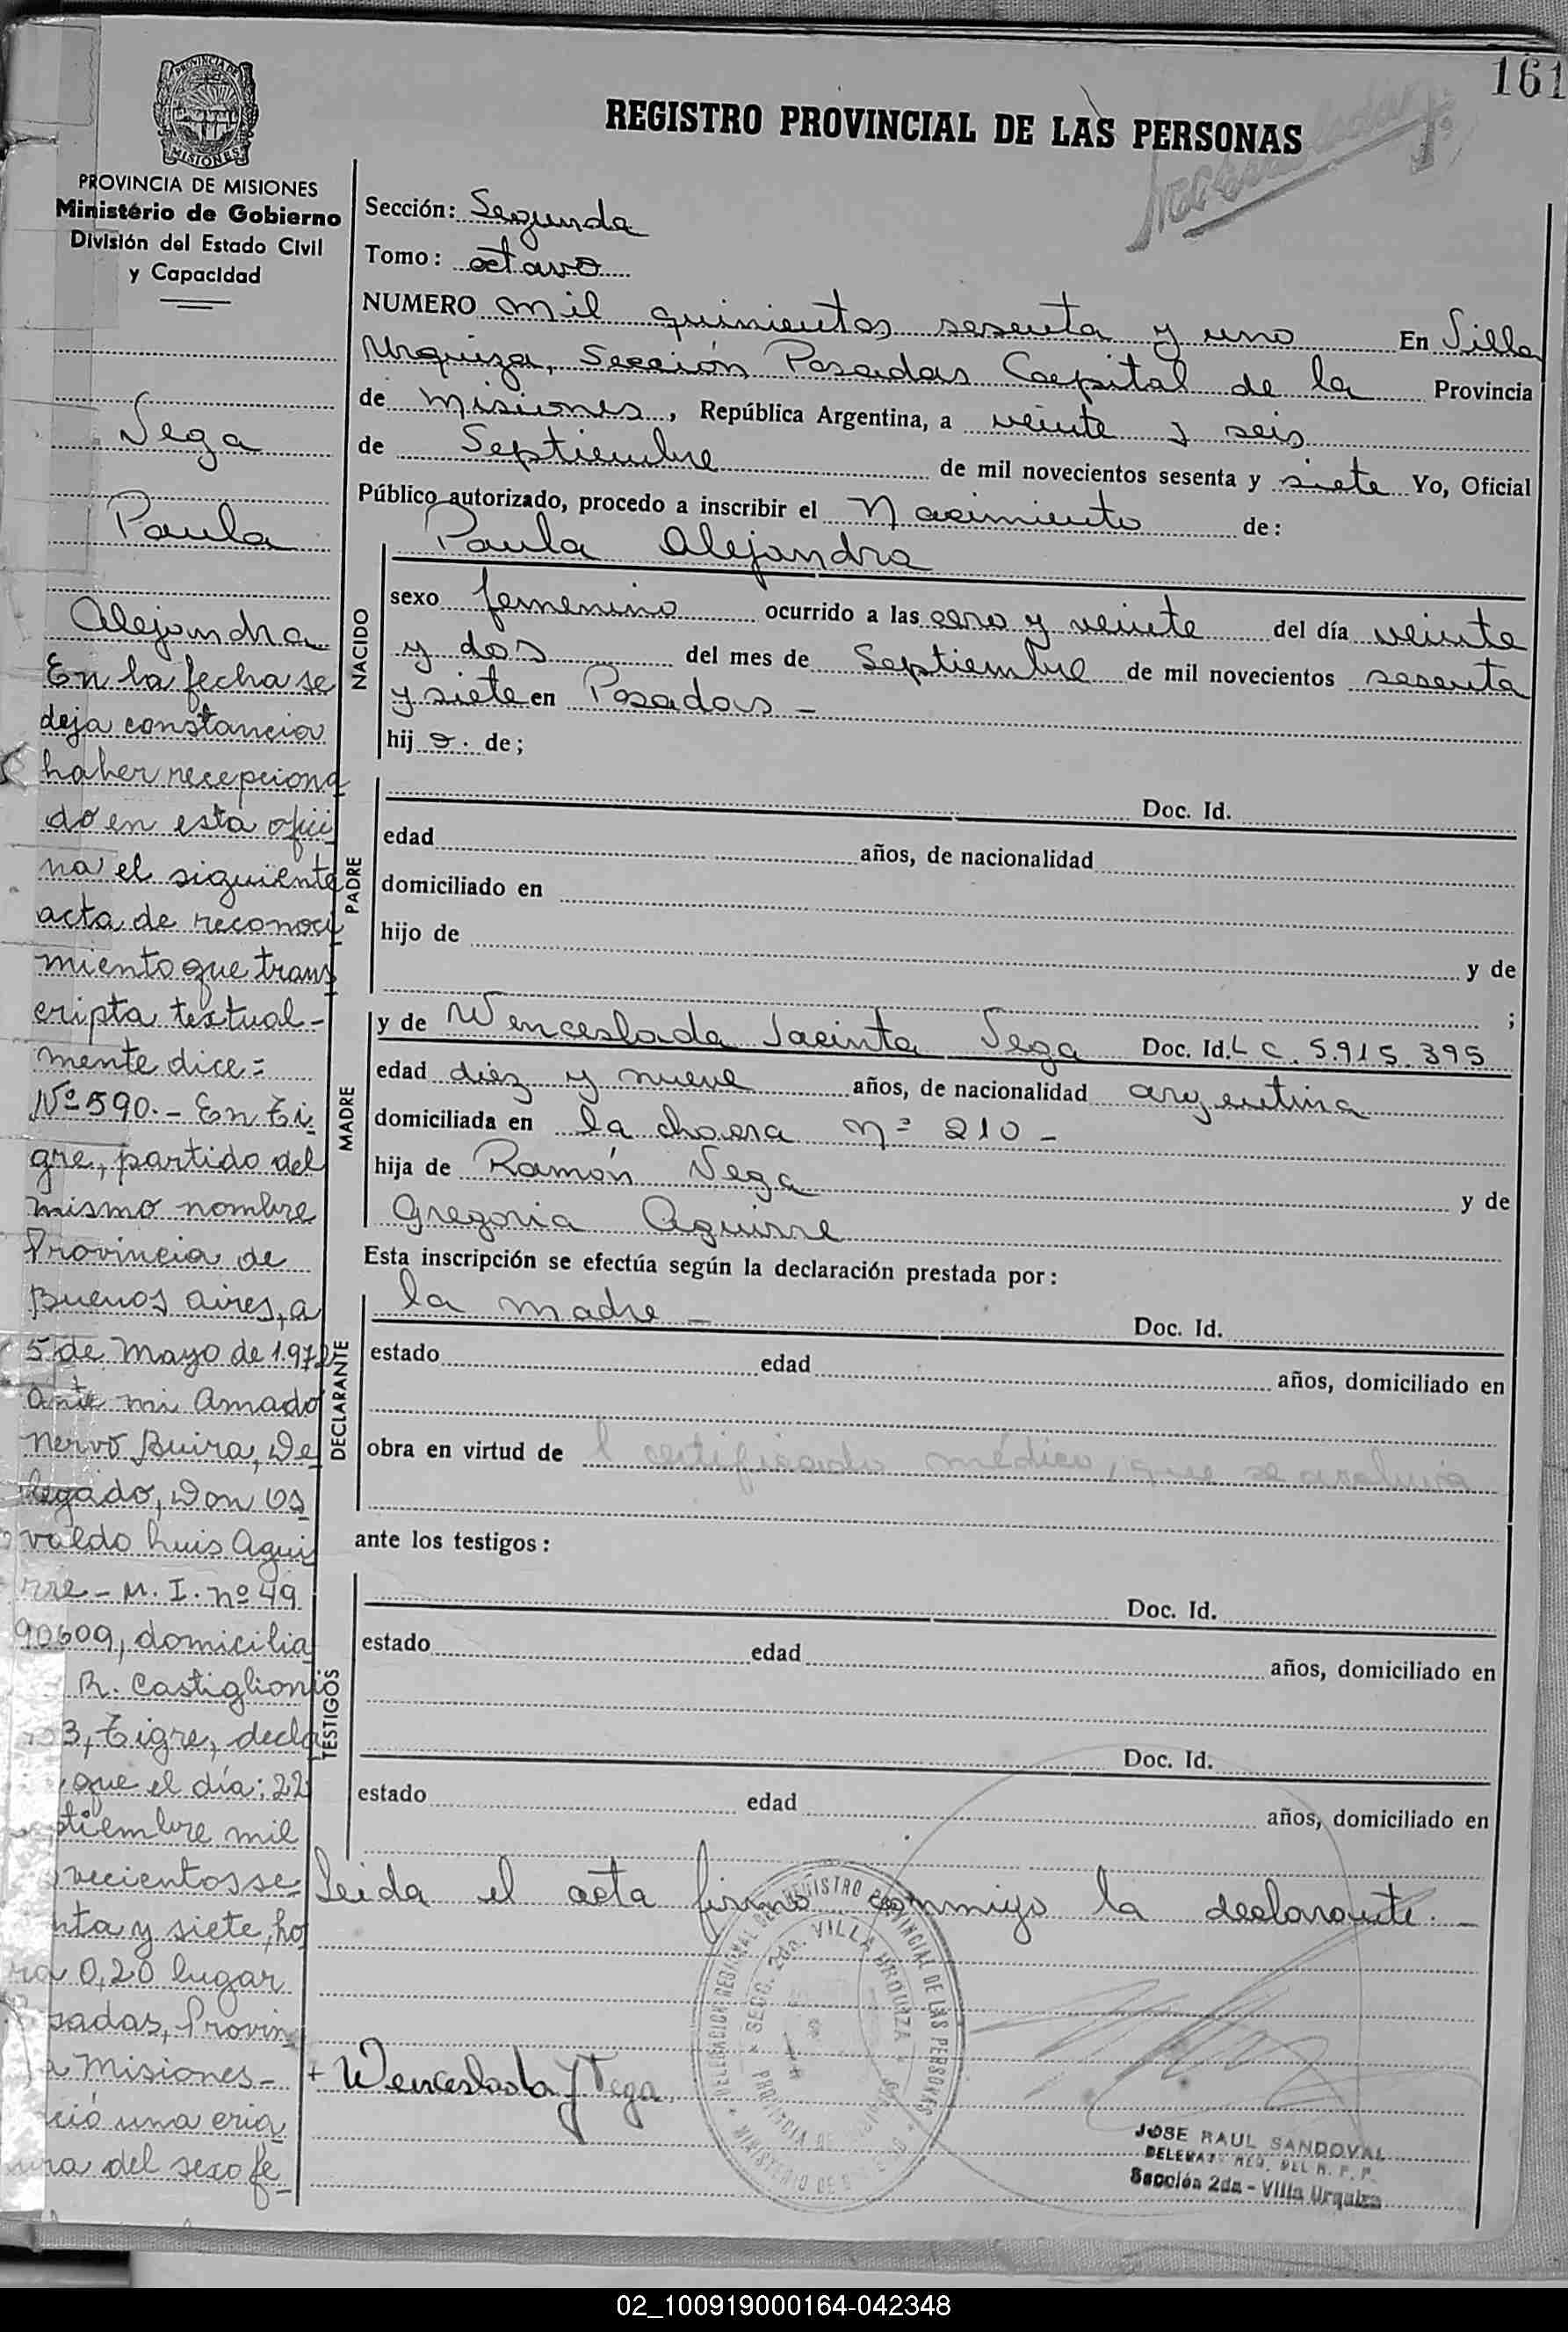 161
PROVINCIA DE MISIONES
REGISTRO PROVINCIAL DE LAS PERSONAS
PROVINCIA DE MISIONES
Ministerio de Gobierno
División del Estado Civil
y Capacidad
Vega
Paula
Alejandra
En la fecha se
deja constancia
haber recepciona
do en esta ofici
na el siguiente
acta de reconoci
miento que trans
cripta textual-
mente dice=
Nº 590.- En Ti
gre, partido del
mismo nombre
Provincia de
Buenos Aires, a
5 de Mayo de 1.972
ante mi Amado
Nervo Buira, De
legado, Don Os
valdo Luis Agui
rre - M. I. nº 49
90609, domicilia
R. Castiglioni
3, Tigre, decla
que el día: 22
ptiembre mil
vecientos se
nta y siete, ho
ra 0,20 lugar
sadas, Provin
a Misiones-
ció una cria
ura del sexo fe-
Sección: Segunda
Tomo: octavo
NUMERO mil quinientos sesenta y uno En Villa
Urquiza, Sección Posadas Capital de la Provincia
de Misiones, República Argentina, a veinte y seis
de Septiembre de mil novecientos sesenta y siete Yo, Oficial
Público autorizado, procedo a inscribir el Nacimiento de:
Paula Alejandra
NACIDO
sexo femenino ocurrido a las cero y veinte del día veinte
y dos del mes de Septiembre de mil novecientos sesenta
y siete en Posadas -
hij a. de;
PADRE
Doc. Id.
edad años, de nacionalidad
domiciliado en
hijo de y de
;
MADRE
y de Wenceslada Jacinta Vega Doc. Id. L C. 5.915.395
edad diez y nueve años, de nacionalidad argentina
domiciliada en la chacra nº 210 -
hija de Ramón Vega y de
Gregoria Aguirre
Esta inscripción se efectúa según la declaración prestada por:
DECLARANTE
la madre - Doc. Id.
estado edad años, domiciliado en
obra en virtud de l certificado médico, que se archiva
ante los testigos:
TESTIGOS
Doc. Id.
estado edad años, domiciliado en
Doc. Id.
estado edad años, domiciliado en
Leida el acta firma conmigo la declarante. -
DELEGACION REGIONAL DEL REGISTRO PROVINCIAL DE LAS PERSONAS
SECC. 2da. VILLA URQUIZA
+ Wenceslada J Vega
JOSE RAUL SANDOVAL
DELEGADO REG. DEL R. P. P.
Sección 2da - Villa Urquiza
02_100919000164-042348